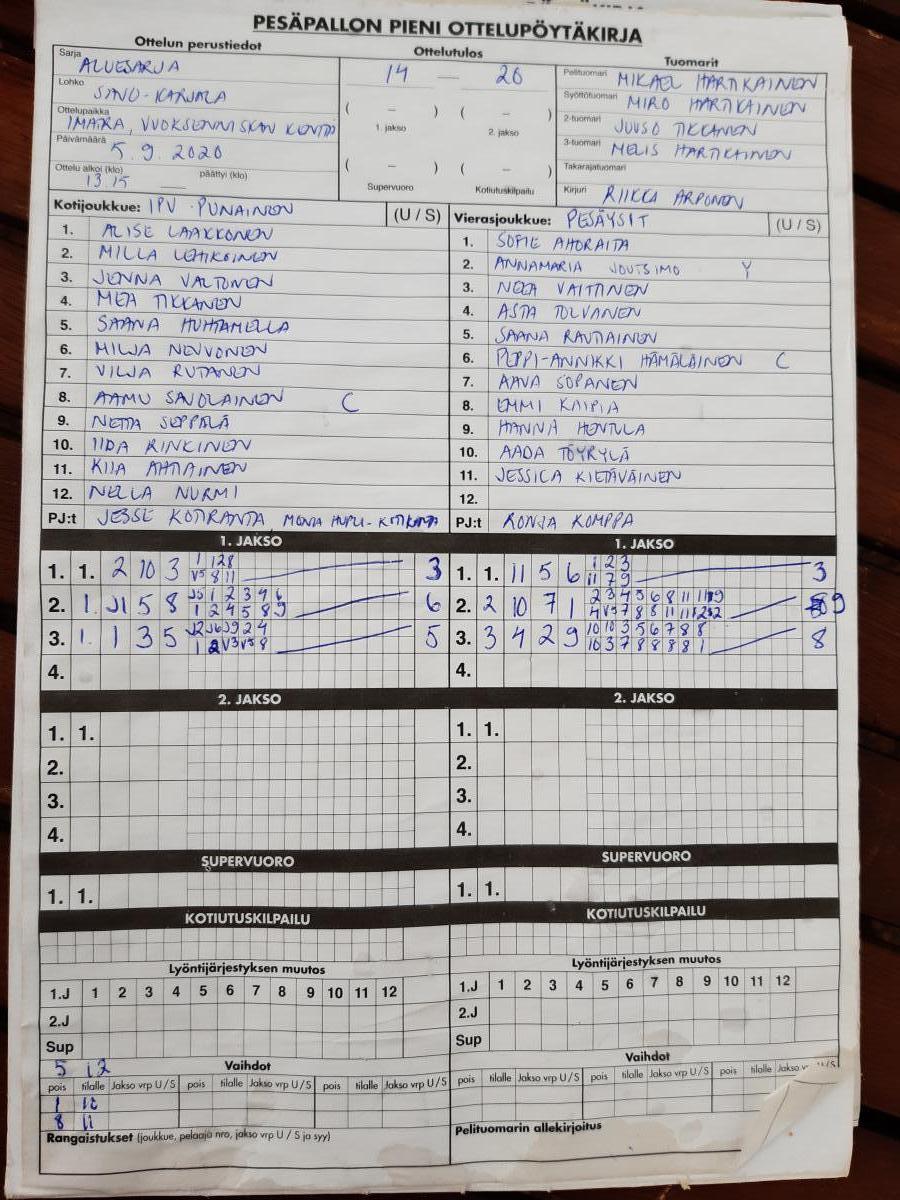 PESÄPALLON PIENI OTTELUPÖYTÄKIRJA
Ottelun perustiedot
Ottelutulos
Tuomarit
Sarja ALUESARJA
Lohko
Ottelupaikka IMATRA, VUOKSENNISKAN KENTTÄ
Päivämäärä 5.9.2020
Ottelu alkoi (klo) 13.15 päättyi (klo)
14 — 20
( – ) ( – )
1. jakso 2. jakso
( – ) ( – )
Supervuoro Kotiutuskilpailu
Pelituomari MIKAEL HARTIKAINEN
Syöttötuomari MIRO HARTIKAINEN
2-tuomari JUUSO TIKKANEN
3-tuomari MELIS HARTIKAINEN
Takarajatuomari
Kirjuri RIIKKA ARPONEN
Kotijoukkue: IPV PUNAINEN (U / S)
1. ALISE LAAKKONEN
2. MILLA LEHIKOINEN
3. JENNA VALTONEN
4. MEA TIKKANEN
5. SAANA HUHTAMELLA
6. MILJA NEVVONEN
7. VILJA RUTANEN
8. AAMU SAVOLAINEN C
9. NETTA SEPPÄLÄ
10. IIDA RINKINEN
11. KIIA AHTIAINEN
12. NELLA NURMI
PJ:t JESSE KOTIRANTA
Vierasjoukkue: PESÄYSIT (U / S)
1. SOFIE AHORAITA
2. ANNAMARIA JOUTSIMO Y
3. NEEA VAITTINEN
4. ASTA TOLVANEN
5. SAANA RAUTIAINEN
6. PEPPI-ANNIKKI HÄMÄLÄINEN C
7. AAVA SOPANEN
8. EMMI KAIPIA
9. HANNA HENTULA
10. AADA TÖYRYLÄ
11. JESSICA KIETÄVÄINEN
12.
PJ:t RONJA KOMPPA
1. JAKSO
1. 1. 2 10 3 3
2. 1. J1 5 8 6
3. 1. 1 3 5 5
4.
1. JAKSO
1. 1. 11 5 6 1 2 3 11 7 9 3
2. 2 10 7 1 9
3. 3 4 2 9 10 10 3 5 6 7 8 8 10 3 7 8 8 8 8 1 8
4.
2. JAKSO
1. 1.
2.
3.
4.
2. JAKSO
1. 1.
2.
3.
4.
SUPERVUORO
1. 1.
SUPERVUORO
1. 1.
KOTIUTUSKILPAILU
KOTIUTUSKILPAILU
Lyöntijärjestyksen muutos
1.J 1 2 3 4 5 6 7 8 9 10 11 12
2.J
Sup
Lyöntijärjestyksen muutos
1.J 1 2 3 4 5 6 7 8 9 10 11 12
2.J
Sup
5 12
Vaihdot
pois tilalle Jakso vrp U / S pois tilalle Jakso vrp U / S pois tilalle Jakso vrp U / S
1 12
8 11
Vaihdot
pois tilalle Jakso vrp U / S pois tilalle Jakso vrp U / S pois tilalle Jakso
Rangaistukset (joukkue, pelaaja nro, jakso vrp U / S ja syy)
Pelituomarin allekirjoitus